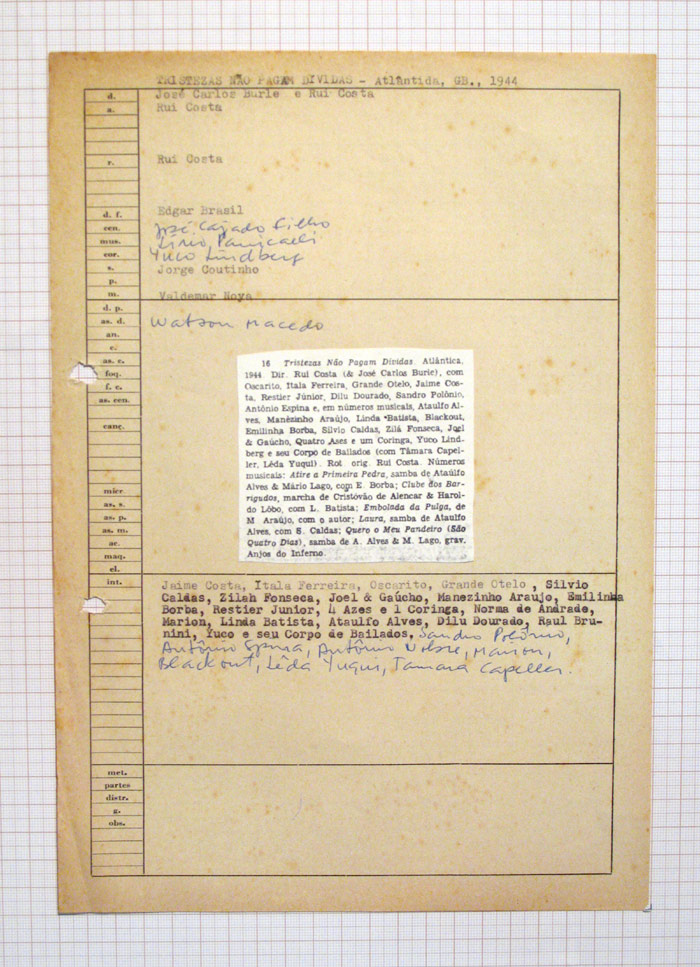 TRISTEZAS NÃO PAGAM DIVIDAS - Atlântida, GB., 1944
d. José Carlos Burle e Rui Costa
a. Rui Costa
r. Rui Costa
d. f. Edgar Brasil
cen. José Cajado Filho
mus. Lirio Panicalli
cor. Yuco Lindberg
s. Jorge Coutinho
p.
m. Valdemar Noya
d. p.
as. d. Watson Macedo
an.
c.
as. c.
foq.
f. c.
as. cen.
canç.
micr
as. s.
as. p.
as. m.
ac.
maq.
el.
16 Tristezas Não Pagam Dívidas. Atlântica,
1944. Dir. Rui Costa (& José Carlos Burle), com
Oscarito, Itala Ferreira, Grande Otelo, Jaime Cos-
ta, Restier Júnior, Dilu Dourado, Sandro Polônio,
Antônio Espina e, em números musicais, Ataulfo Al-
ves, Manèzinho Araújo, Linda Batista, Blackout,
Emilinha Borba, Silvio Caldas, Zilá Fonseca, Joel
& Gaúcho, Quatro Ases e um Coringa, Yuco Lind-
berg e seu Corpo de Bailados (com Tâmara Capel-
ler, Lêda Yuqui). Rot. orig. Rui Costa. Números
musicais: Atire a Primeira Pedra, samba de Ataúlfo
Alves & Mário Lago, com E. Borba; Clube dos Bar-
rigudos, marcha de Cristóvão de Alencar & Harol-
do Lôbo, com L. Batista; Embolada da Pulga, de
M Araújo, com o autor; Laura, samba de Ataulfo
Alves, com S. Caldas; Quero o Meu Pandeiro (São
Quatro Dias), samba de A. Alves & M. Lago, grav.
Anjos do Inferno.
int. Jaime Costa, Itala Ferreira, Oscarito, Grande Otelo , Silvio
Caldas, Zilah Fonseca, Joel & Gaúcho, Manezinho Araujo, Emilinha
Borba, Restier Junior, 4 Azes e 1 Coringa, Norma de Andrade,
Marion, Linda Batista, Ataulfo Alves, Dilu Dourado, Raul Bru-
nini, Yuco e seu Corpo de Bailados. Sandro Polônio,
Antônio Spina, Antônio Nobre, Marion,
Blackout, Lêda Yuqui, Tamara Capeller.
met.
partes
distr.
g.
obs.